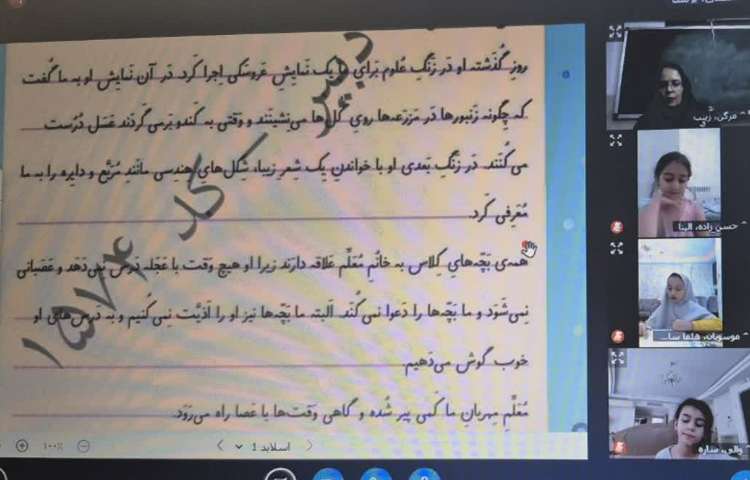 روزِ گُذَشته، او دَر زَنگِ عُلوم بَرای یک نَمایشِ عَروسَکی اِجرا کَرد. دَر آن نَمایش او به ما گُفت
که چِگونه زَنبورها دَر مَزرَعه‌ها رویِ گُل‌ها می‌نِشینَند و وَقتی به کَندو بَرمی‌گَردَند عَسَل دُرُست
می‌کُنَند. دَر زَنگِ بَعدی او با خواندَنِ یِک شِعرِ زیبا، شِکل‌هایِ هِندِسی مانَندِ مُرَبَّع و دایره را به ما
مُعَرِفی کَرد.
هَمه‌ی بَچّه‌هایِ کِلاس به خانُمِ مُعَلِّم عَلاقه دارَند زیرا او هیچ وَقت با عَجَله دَرس نِمی‌دَهَد و عَصَبانی
نِمی‌شَوَد و ما بَچّه‌ها را دَعوا نِمی‌کُنَد. اَلبته ما بَچّه‌ها نیز او را اَذیَّت نِمی‌کُنیم و به دَرس‌هایِ او
خوب گوش می‌دَهیم.
مُعَلِّمِ مِهرَبانِ ما کَمی پیر شُده و گاهی وَقت‌ها با عَصا راه می‌رَوَد.
۱۰۰%
اسلاید 1
حسن زاده، الینا
موسویان، هلما سا...
والی، ساره